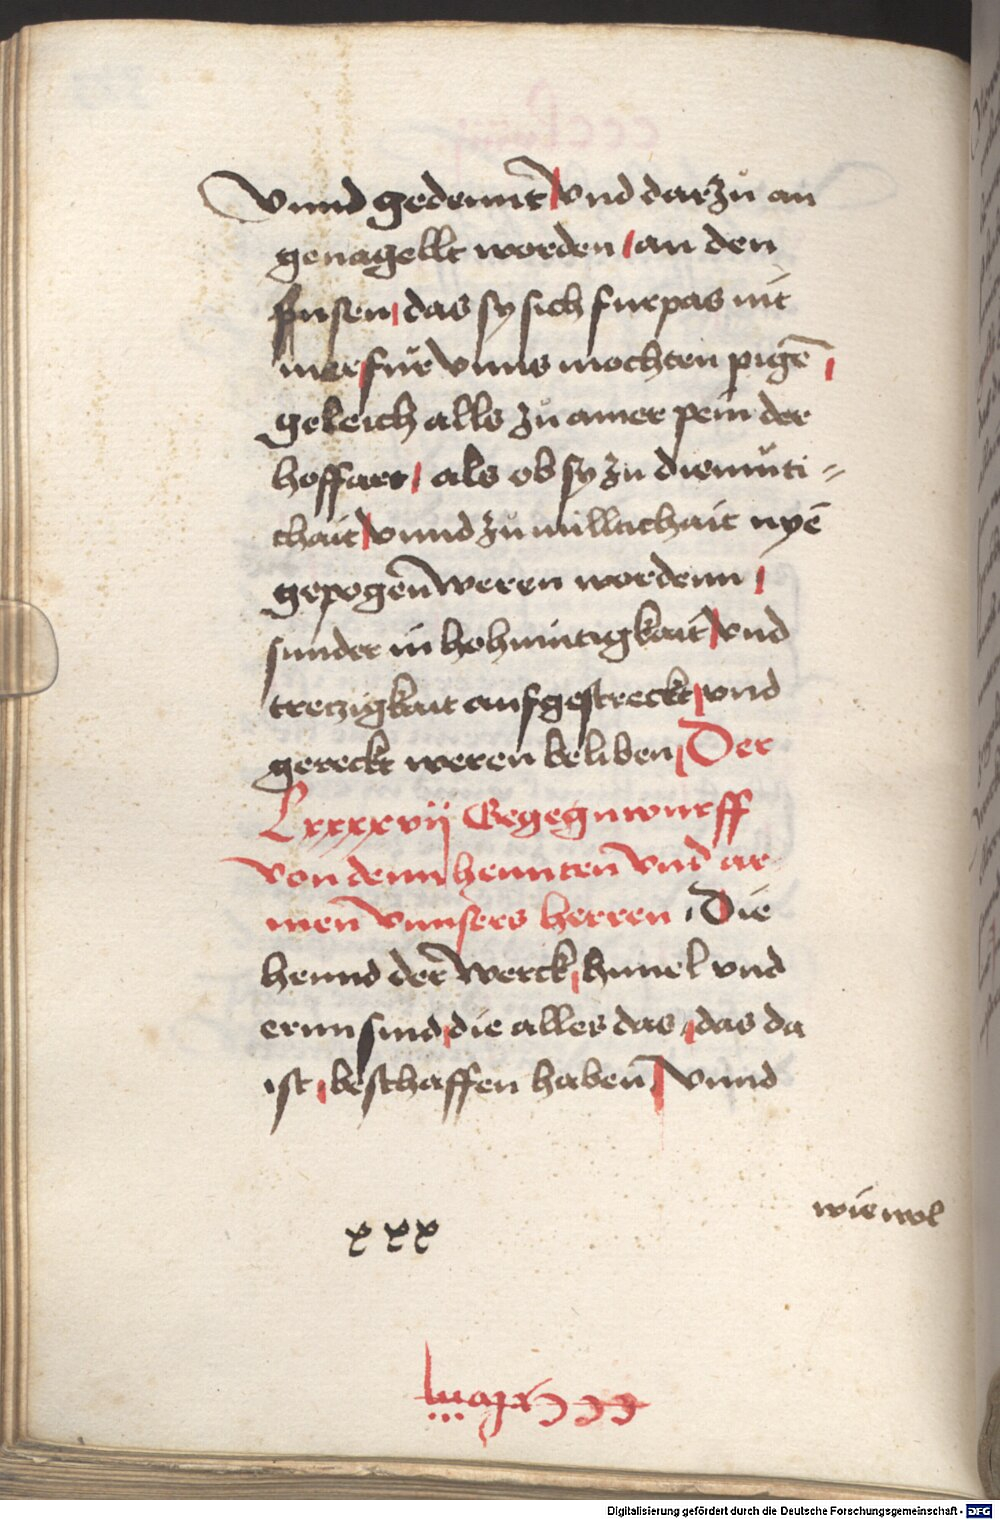 Vnnd gedennt vnd darzů an
genagellt worden an den
fusen das sy sich furpas nit
mer fur vnns mochten pigē
geleich alls zů ainer pein der
hoffart als ob sy zu diemůti=
chait vnnd zů millichait nyē
gepogen̄ weren wordenn
sunder in hohmutigkait vnd
treczigkait aufgestreckt vnd
gereckt weren beliben Der
Lxxxxvij Gegegnwurff
von denn hennten̄ vnd ar
men̄ vnnsers herren Die
hennd der werck himel vnd
ernn sind die alles das das da
ist beschaffen haben̄ Vnnd
wie wol
xxx
Digitalisierung gefördert durch die Deutsche Forschungsgemeinschaft - DFG